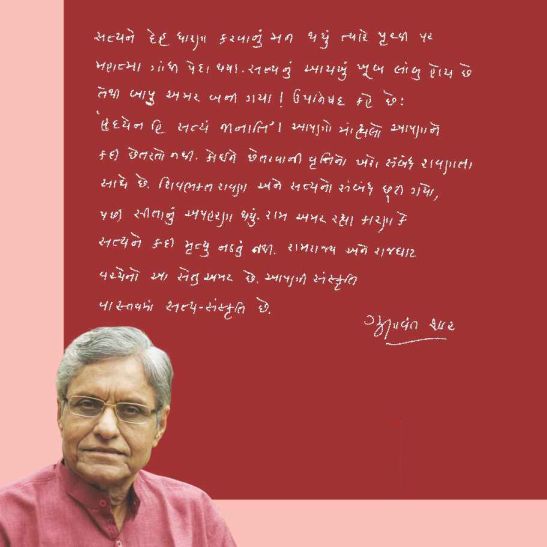 સત્યને દેહ ધારણ કરવાનું મન થયું ત્યારે પૃથ્વી પર
મહાત્મા ગાંધી પેદા થયા. સત્યનું આયખું ખૂબ લાંબુ હોય છે
તેથી બાપુ અમર બની ગયા! ઉપનિષદ કહે છે:
'હૃદયેન હિ સત્યં જાનાતિ'। આપણો માંહ્યલો આપણને
કદી છેતરતો નથી. કોઈને છેતરવાની વૃત્તિનો ખરો સંબંધ રાવણતા
સાથે છે. શિવભક્ત રાવણ અને સત્યનો સંબંધ છૂટી ગયો,
પછી સીતાનું અપહરણ થયું. રામ અમર રહ્યા કારણ કે
સત્યને કદી મૃત્યુ નડતું નથી. રામરાજ્ય અને રાજઘાટ
વચ્ચેનો આ સેતુ અમર છે. આપણી સંસ્કૃતિ
વાસ્તવમાં સત્ય-સંસ્કૃતિ છે.
ગુણવંત શાહ